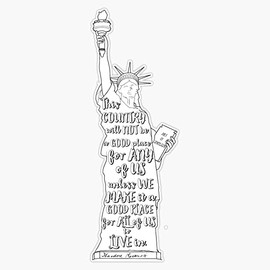 This
COUNTRY
will NOT be
a GOOD place
for ANY
of US
unless WE
MAKE it a
GOOD PLACE
for ALL of US
to
LIVE in.
Theodore Roosevelt